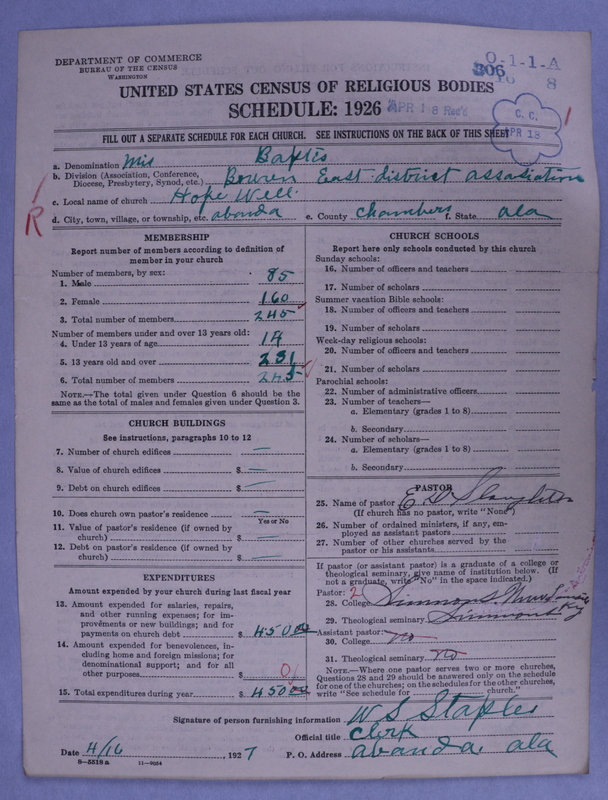 DEPARTMENT OF COMMERCE
BUREAU OF THE CENSUS
WASHINGTON
O-1-1-A
306
8
UNITED STATES CENSUS OF RELIGIOUS BODIES
SCHEDULE: 1926
APR 18 Rec'd
C. C.
APR 18
FILL OUT A SEPARATE SCHEDULE FOR EACH CHURCH. SEE INSTRUCTIONS ON THE BACK OF THIS SHEET
a. Denomination Mis Baptis
b. Division (Association, Conference, Diocese, Presbytery, Synod, etc.) Bowen East district assosiation
c. Local name of church Hope Well
R
d. City, town, village, or township, etc. abanda e. County Chambers f. State ala
MEMBERSHIP
Report number of members according to definition of member in your church
Number of members, by sex:
1. Male 85
2. Female 160
3. Total number of members 245
Number of members under and over 13 years old:
4. Under 13 years of age 14
5. 13 years old and over 231
6. Total number of members 245
NOTE.—The total given under Question 6 should be the same as the total of males and females given under Question 3.
CHURCH BUILDINGS
See instructions, paragraphs 10 to 12
7. Number of church edifices —
8. Value of church edifices $ —
9. Debt on church edifices $ —
10. Does church own pastor's residence —
Yes or No
11. Value of pastor's residence (if owned by church) $ —
12. Debt on pastor's residence (if owned by church) $ —
EXPENDITURES
Amount expended by your church during last fiscal year
13. Amount expended for salaries, repairs, and other running expenses; for improvements or new buildings; and for payments on church debt $ 450 00
14. Amount expended for benevolences, including home and foreign missions; for denominational support; and for all other purposes $ 0
15. Total expenditures during year $ 450 00
CHURCH SCHOOLS
Report here only schools conducted by this church
Sunday schools:
16. Number of officers and teachers
17. Number of scholars
Summer vacation Bible schools:
18. Number of officers and teachers
19. Number of scholars
Week-day religious schools:
20. Number of officers and teachers
21. Number of scholars
Parochial schools:
22. Number of administrative officers
23. Number of teachers—
a. Elementary (grades 1 to 8)
b. Secondary
24. Number of scholars—
a. Elementary (grades 1 to 8)
b. Secondary
PASTOR
25. Name of pastor E. D. Slaughter
(If church has no pastor, write "None")
26. Number of ordained ministers, if any, employed as assistant pastors
27. Number of other churches served by the pastor or his assistants
If pastor (or assistant pastor) is a graduate of a college or theological seminary, give name of institution below. (If not a graduate, write "No" in the space indicated.)
Pastor: 2
28. College Simmons
29. Theological seminary Simmons Ky
Assistant pastor:
30. College no
31. Theological seminary no
NOTE.—Where one pastor serves two or more churches, Questions 28 and 29 should be answered only on the schedule for one of the churches; on the schedules for the other churches, write "See schedule for church."
Signature of person furnishing information W S Staples
Official title Clerk
Date 4/16, 1927 P. O. Address abanda ala
8—5518 a 11—9054